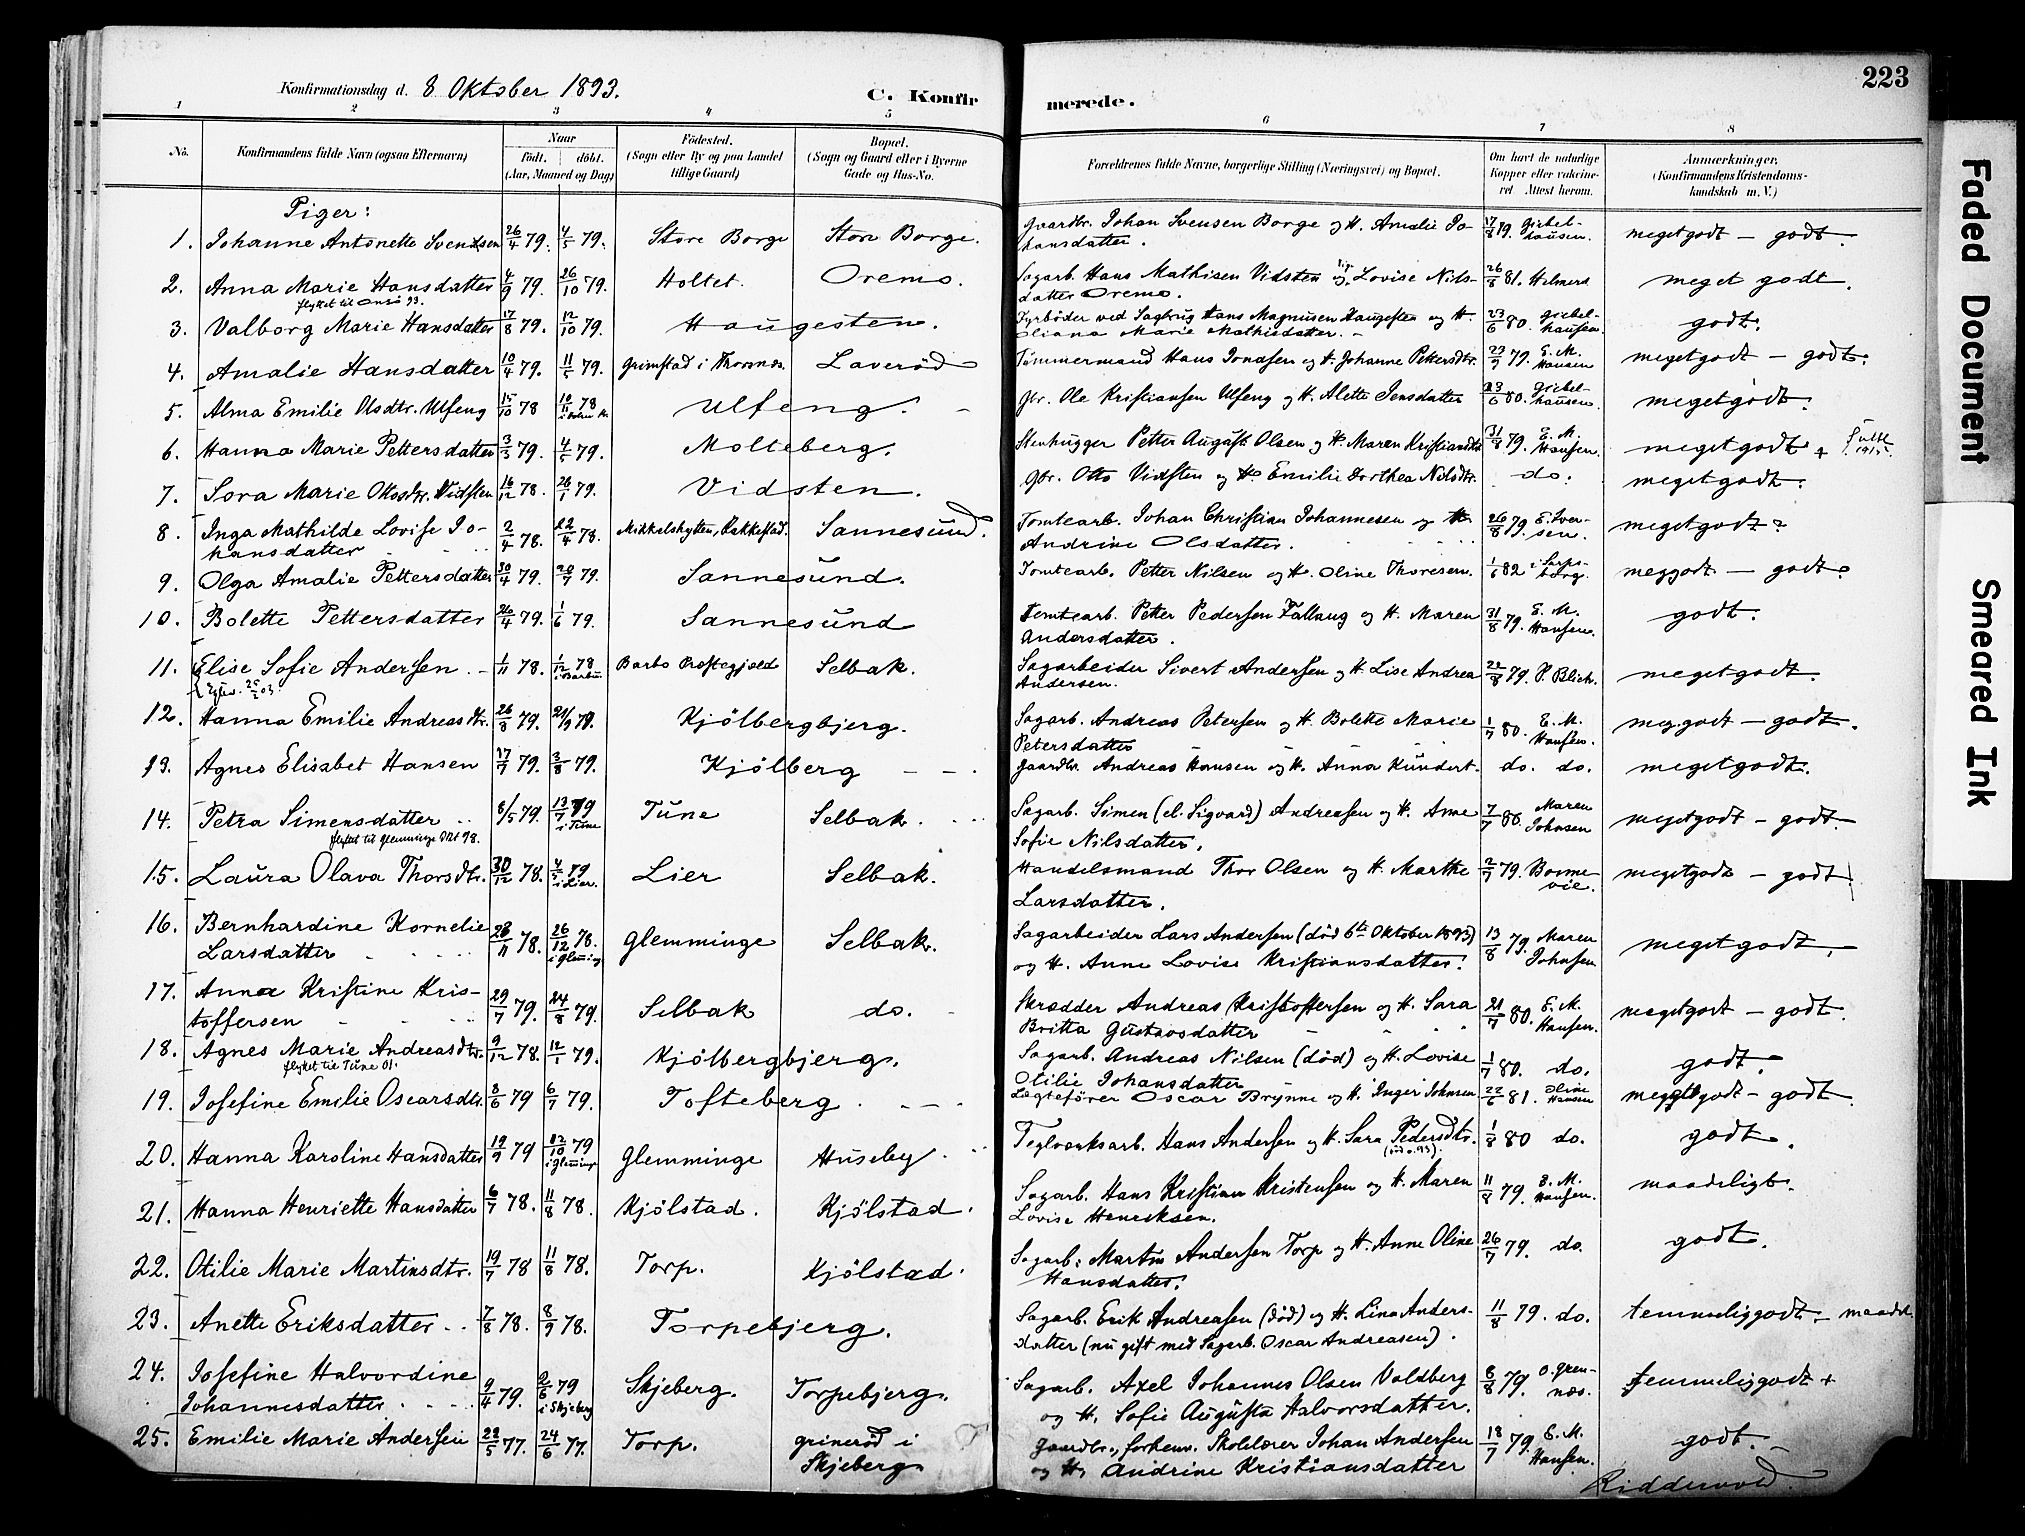 Konfirmationsdag d. 8 Oktober 1893.
C. Konfirmerede.
223
1 2 3 4 5 6 7 8
No. Konfirmandens fulde Navn (ogsaa Efternavn) Naar født. døbt. (Aar, Maaned og Dag) Fødested. (Sogn eller By og paa Landet tillige Gaard) Bopæl. (Sogn og Gaard eller i Byerne Gade og Hus-No. Forældrenes fulde Navne, borgerlige Stilling (Næringsvei) og Bopæl. Om havt de naturlige Kopper eller vakcineret Attest herom. Anmærkninger. (Konfirmandens Kristendomskundskab m. V.)
Piger:
1. Johanne Antonette Svendsen 26/4 79. 4/5 79. Store Borge Store Borge. Gaardbr. Johan Svensen Borge og H. Amalie Johansdatter. 17/8 79. Giebelhausen. megetgodt – godt.
2. Anna Marie Hansdatter 4/9 79. 26/10 79. Holtet. Oremo. Sagarb. Hans Mathisen Vidsten og Lovise Nilsdatter Oremo. 26/8 81. Helmers meget godt.
flyttet til Onsö 93.
3. Valborg Marie Hansdatter 17/8 79. 12/10 79. Haugesten. Fyrböder ved Sagbrug Hans Magnusen Haugesten og H. Oliana Marie Mathisdatter. 23/6 80. Giebelhausen. godt.
4. Amalie Hansdatter 10/4 79. 11/5 79. Grimstad i Thorsnæs. Laveröd Tömmermand Hans Jonasen og H. Johanne Pettersdtr. 29/9 79. E. M. Hansen megetgodt – godt.
5. Alma Emilie Olsdtr. Ulfeng 15/10 78 10/11 78 Ulfeng. Gbr. Ole Kristiansen Ulfeng og H. Alette Jensdatter 23/6 80. Giebelhausen. megetgodt.
6. Hanna Marie Pettersdatter 3/3 79. 4/5 79. Molteberg. Stenhugger Petter August Olsen og H. Maren Kristiansdtr 31/8 79. E. M. Hansen. megetgodt + 1915.
7. Sora Marie Ottosdtr. Vidsten 16/12 78. 26/1 79. Vidsten. Gbr. Otto Vidsten og H. Emilie Dorthea Nilsdtr. do. megetgodt.
8. Inga Mathilde Lovise Johansdatter 2/4 78. 22/4 78. Mikkelshytten, Rakkestad. Sannesund. Tomtearb. Johan Christian Johannesen og H. Andrine Olsdatter. 26/8 79. E. Iversen. megetgodt?
9. Olga Amalie Pettersdatter 30/4 79. 20/7 79. Sannesund. Tomtearb. Petter Nilsen og H. Oline Thoresen. 1/6 82 i Sarpsborg. meg.godt – godt.
10. Bolette Pettersdatter 26/4 79. 1/6 79. Sannesund Tomtearb. Petter Pedersen Fallaug og H. Maren Andersdatter. 31/8 79. E. M. Hansen. godt.
11. Elise Sofie Andersen. – 1/11 78. 1/12 78 i Barbu. Barbo Prestegjeld Selbak. Sagarbeider Sivert Andersen og H. Lise Andrea Andersen. 22/8 79. P. Blich. megetgodt.
12. Hanna Emilie Andreasdtr. 26/8 79. 21/9 79. Kjölbergbjerg. Sagarb. Andreas Petersen og H. Bolette Marie Petersdatter 1/7 80. E. M. Hansen. meg.godt – godt.
13. Agnes Elisabet Hansen 17/7 79. 3/8 79. Kjölberg Gaardbr. Andreas Hansen og H. Anna Kundert. do. do. megetgodt.
14. Petra Simensdatter 8/5 79. 13/7 79 i Tune Tune Selbak. Sagarb. Simen (el. Sigvard) Andreasen og H. Anne Sofie Nilsdatter. 7/7 80. Maren Johnsen megetgodt – godt.
flyttet til Glemminge Okt 98.
15. Laura Olava Thorsdtr. 30/12 78. 4/5 79 i Lier. Lier Selbak. Handelsmand Thor Olsen og H. Marthe Larsdatter. 2/7 79. Bonnevie. megetgodt – godt.
16. Bernhardine Kornelie Larsdatter 28/11 78. 26/12 78. i Glemming Glemminge Selbak. Sagarbeider Lars Andersen (död 6te Oktober 1893) og H. Anne Lovise Kristiansdatter. 13/8 79. Maren Johnsen megetgodt.
17. Anna Kristine Kristoffersen 29/7 79. 24/8 79. Selbak do. Skrædder Andreas Kristoffersen og H. Sara Britta Gustavsdatter 21/7 80. E. M. Hansen. megetgodt – godt.
18. Agnes Marie Andreasdtr. 9/12 78. 12/1 79. Kjölbergbjerg. Sagarb. Andreas Nilsen (död) og H. Lovise Otilie Johansdatter 1/7 80. do. godt.
flyttet til Tune 01.
19. Josefine Emilie Oscarsdtr. 8/6 79 6/7 79. Tofteberg. Lægtefører Oscar Brynne og H. Inger Johnsen 22/6 81. Oline Hansen meggodt – godt.
20. Hanna Karoline Hansdatter 19/9 79 12/10 79 i Glemminge Glemminge Huseby. Teglværksarb. Hans Andersen og H. Sara Pedersdtr. 1/8 80 do. godt.
21. Hanna Henriette Hansdatter 6/7 78. 11/8 78. Kjölstad. Kjölstad. Sagarb. Hans Kristian Kristensen og H. Maren Lovise Henriksen. 11/8 79. E. M. Hansen. maadeligt.
22. Otilie Marie Martinsdtr. 19/7 78 11/8 78. Torp. Kjölstad. Sagarb. Martin Andersen Torp og H. Anne Oline Hansdatter. 26/7 79. do. godt.
23. Anette Eriksdatter 7/8 78. 8/9 78. Torpebjerg. Sagarb. Erik Andreasen (död) og H. Lina Andersdatter (nu gift med Sagarb. Oscar Andreasen). 11/8 79. do. temmeliggodt – maadel.
24. Josefine Halvordine Johannesdatter 9/4 79. 2/6 79 i Skjeberg Skjeberg. Torpebjerg. Sagarb. Axel Johannes Olsen Voldberg og H. Sofie Augusta Halvorsdatter. 8/8 79. O. Grennæs. temmeliggodt +
25. Emilie Marie Andersen 22/5 77. 24/6 77. Torp. Grineröd i Skjeberg Gaardbr., forhenv. Skolelærer Johan Andersen og H. Andrine Kristiansdatter 18/7 79. E. M. Hansen. godt.
Riddervold.
Faded Document
Smeared Ink